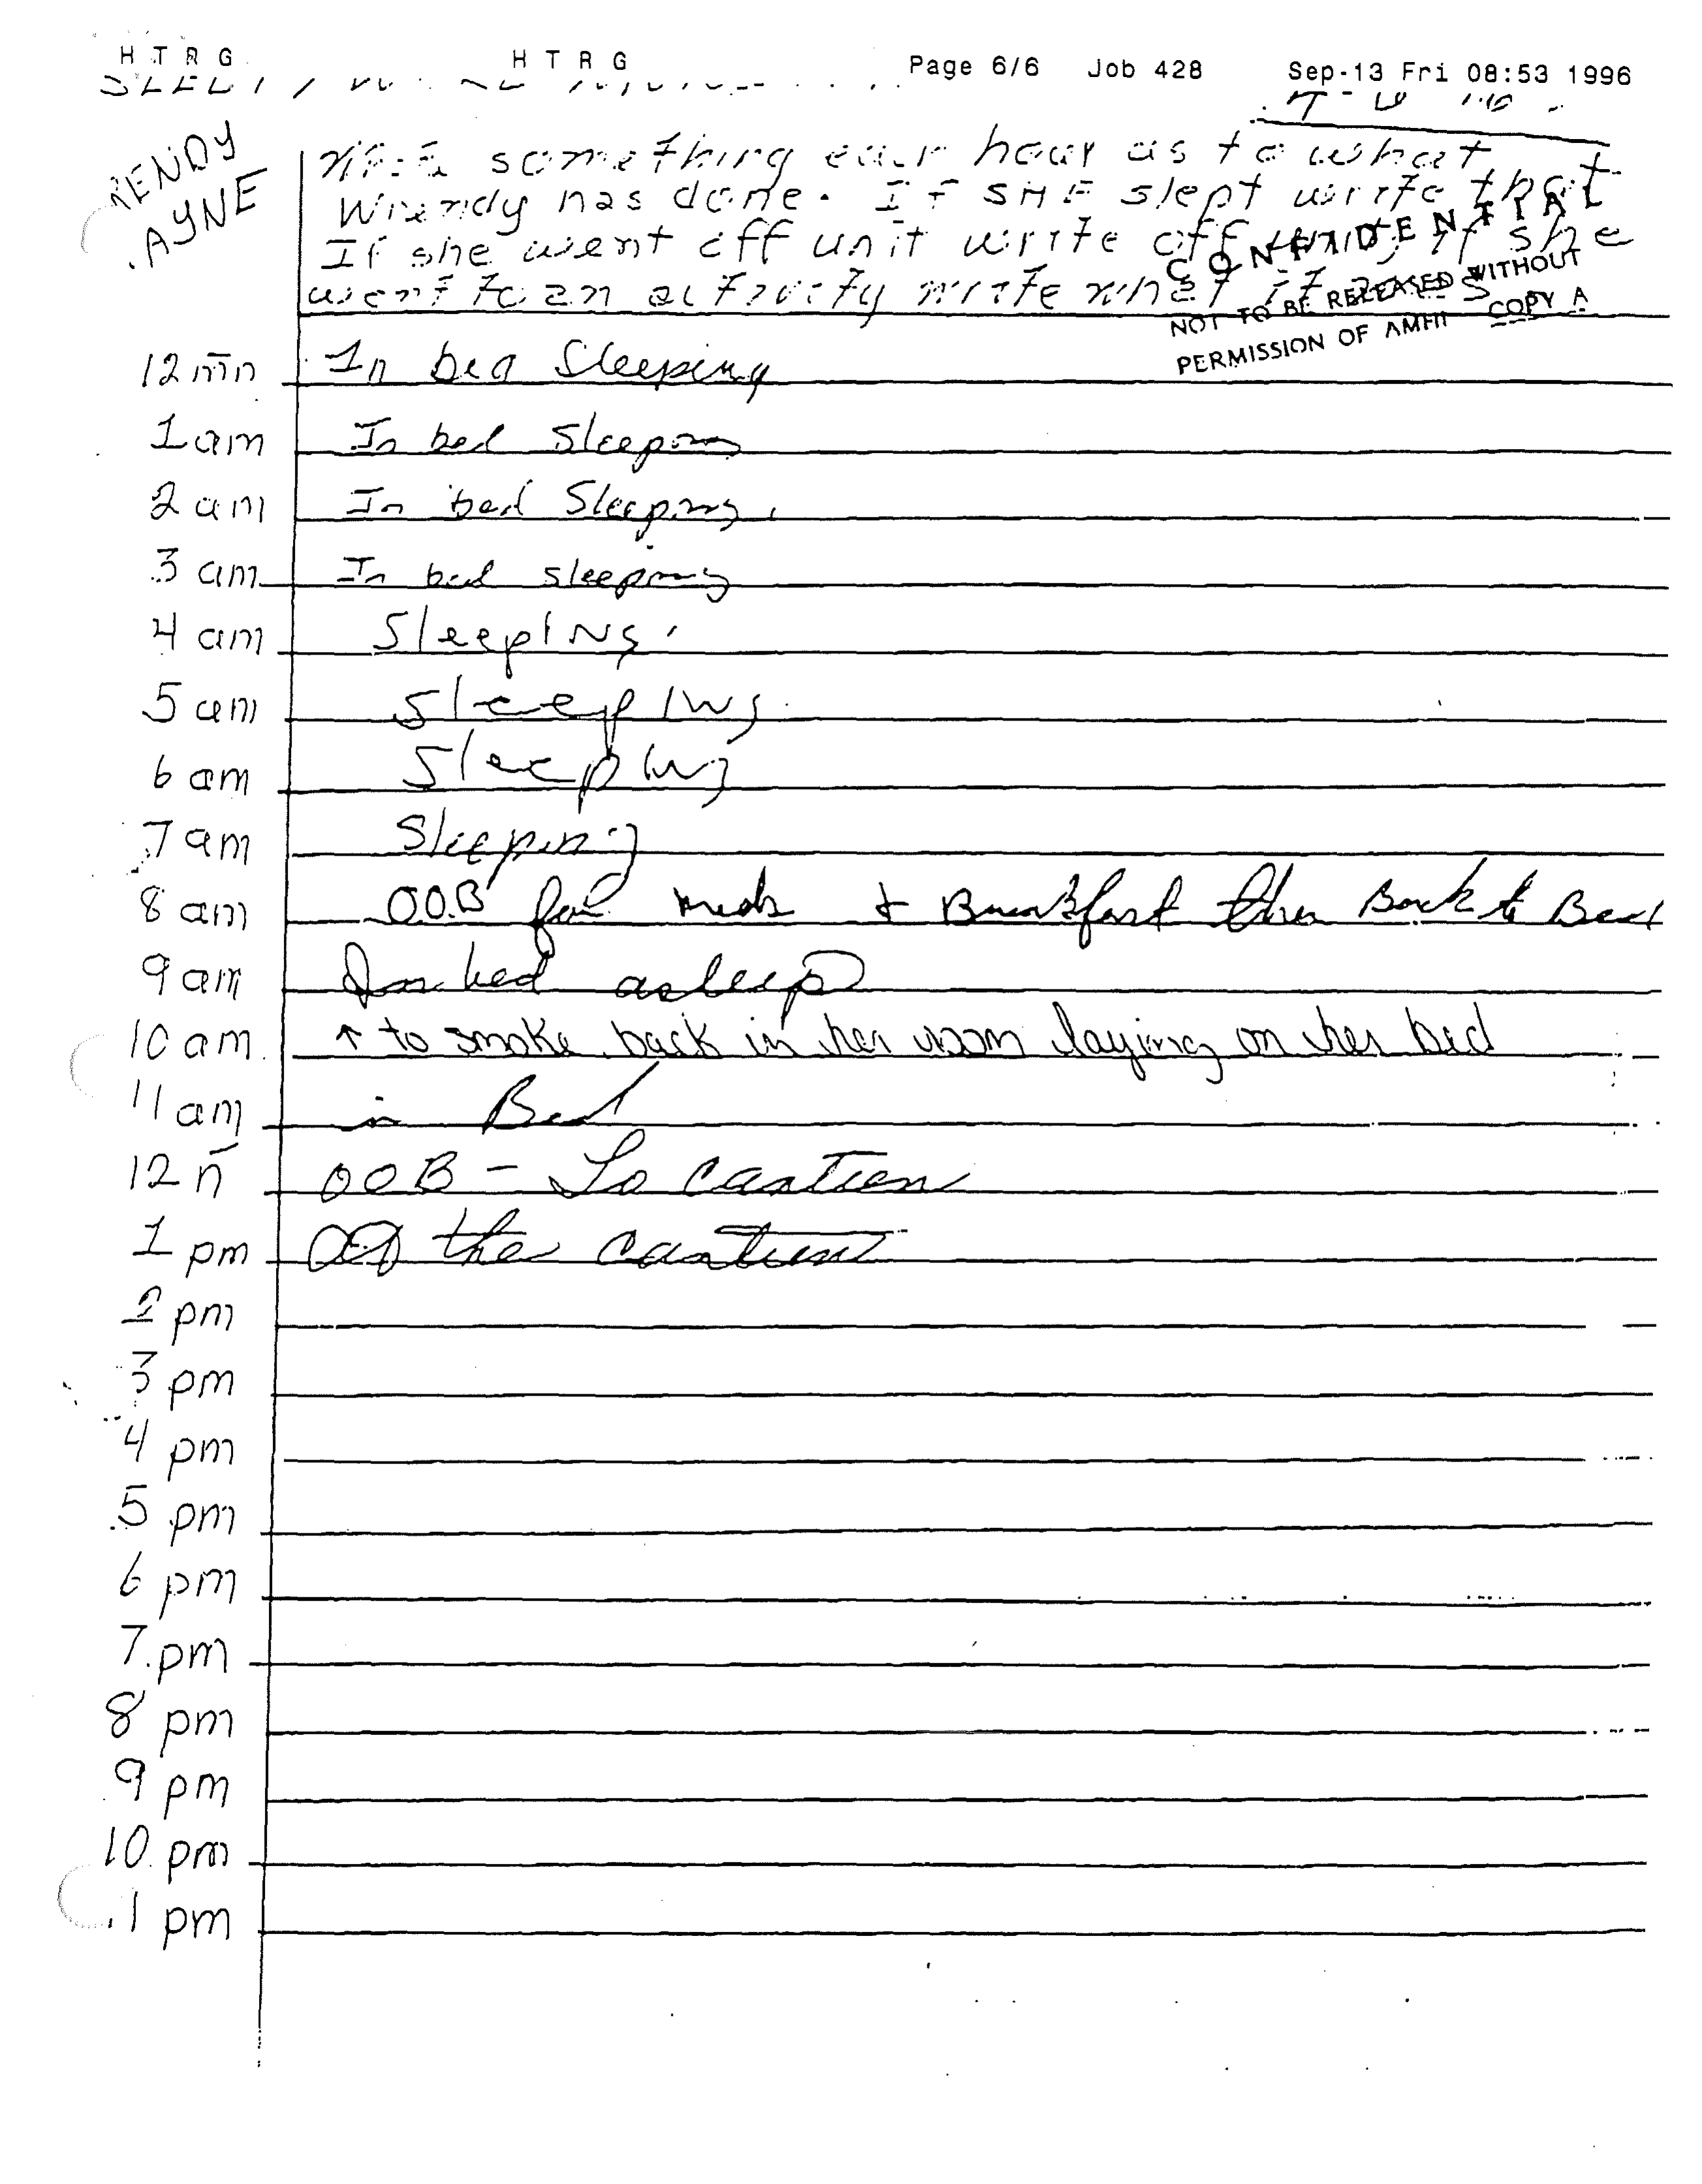 H T R G H T R G Page 6/6 Job 428 Sep-13 Fri 08:53 1996
RENDY
AYNE
something each hour as to what
Wrendy has done. If SHE slept write that
If she went off unit write off unit, if she
went to an activity write what it
CONFIDENTIAL
NOT TO BE RELEASED WITHOUT
PERMISSION OF AMHI COPY A
12 mn In bed Sleeping
1 am In bed Sleeping
2 am In bed Sleeping.
3 am In bed sleeping
4 am SleepINg.
5 am SleepINg.
6 am SleepINg
7 am Sleeping
8 am OOB for meds + Breakfast then Back to Bed
9 am In bed asleep
10 am ↑ to smoke back in her room laying on her bed
11 am in Bed
12 n OOB - To cantien
1 pm At the cantien
2 pm
3 pm
4 pm
5 pm
6 pm
7 pm
8 pm
9 pm
10 pm
1 pm